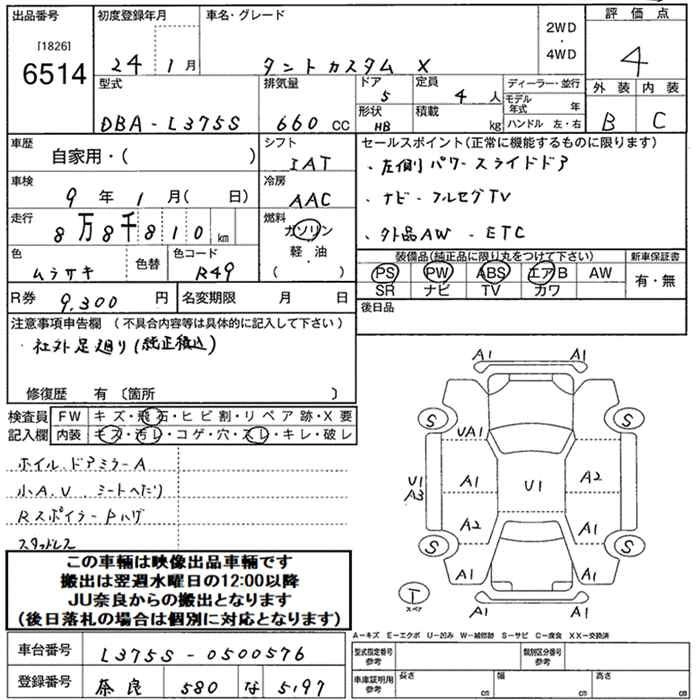 出品番号 初度登録年月 車名・グレード 2WD・4WD 評価点
[1826]
6514 24 1月 タントカスタム X 4
型式 排気量 ドア 5 定員 4人 ディーラー・並行 外装 内装
モデル年式 年
DBA-L375S 660 CC 形状 HB 積載 kg ハンドル 左・右 B C
車歴 自家用・( ) シフト IAT
セールスポイント(正常に機能するものに限ります)
・左側パワースライドドア
車検 9年 1月( 日) 冷房 AAC
・ナビ・フルセグTV
走行 8万8千810km 燃料 ガソリン 軽・油 ( )
・外品AW・ETC
色 ムラサキ 色替 色コード R49
装備品(純正品に限り丸をつけて下さい) 新車保証書
PS PW ABS エアB AW 有・無
SR ナビ TV カワ
R券 9,300円 名変期限 月 日
後日品
注意事項申告欄 (不具合内容等は具体的に記入して下さい)
・社外足廻り(純正積込)
修復歴 有 〔箇所 〕
検査員記入欄 FW キズ・飛石・ヒビ割・リペア跡・X要
内装 キズ・汚レ・コゲ・穴・スレ・キレ・破レ
ホイル、ドアミラーA
小A.U シートへたり
Rスポイラー Pハゲ
スタッドレス
この車輌は映像出品車輌です
搬出は翌週水曜日の12:00以降
JU奈良からの搬出となります
(後日落札の場合は個別に対応となります)
A1 A1
S S
UA1 A1
U1 A3 A1 U1 A2
A2 A1
S S
A1 A1
T スペア
A1 A1
A-キズ E-エクボ U-凹み W-補修跡 S-サビ C-腐食 XX-交換済
車台番号 L375S-0500576
型式指定番号 参考 類別区分番号 参考
登録番号 奈良 580 な 5197
車庫証明用 参考 長さ cm 幅 cm 高さ cm